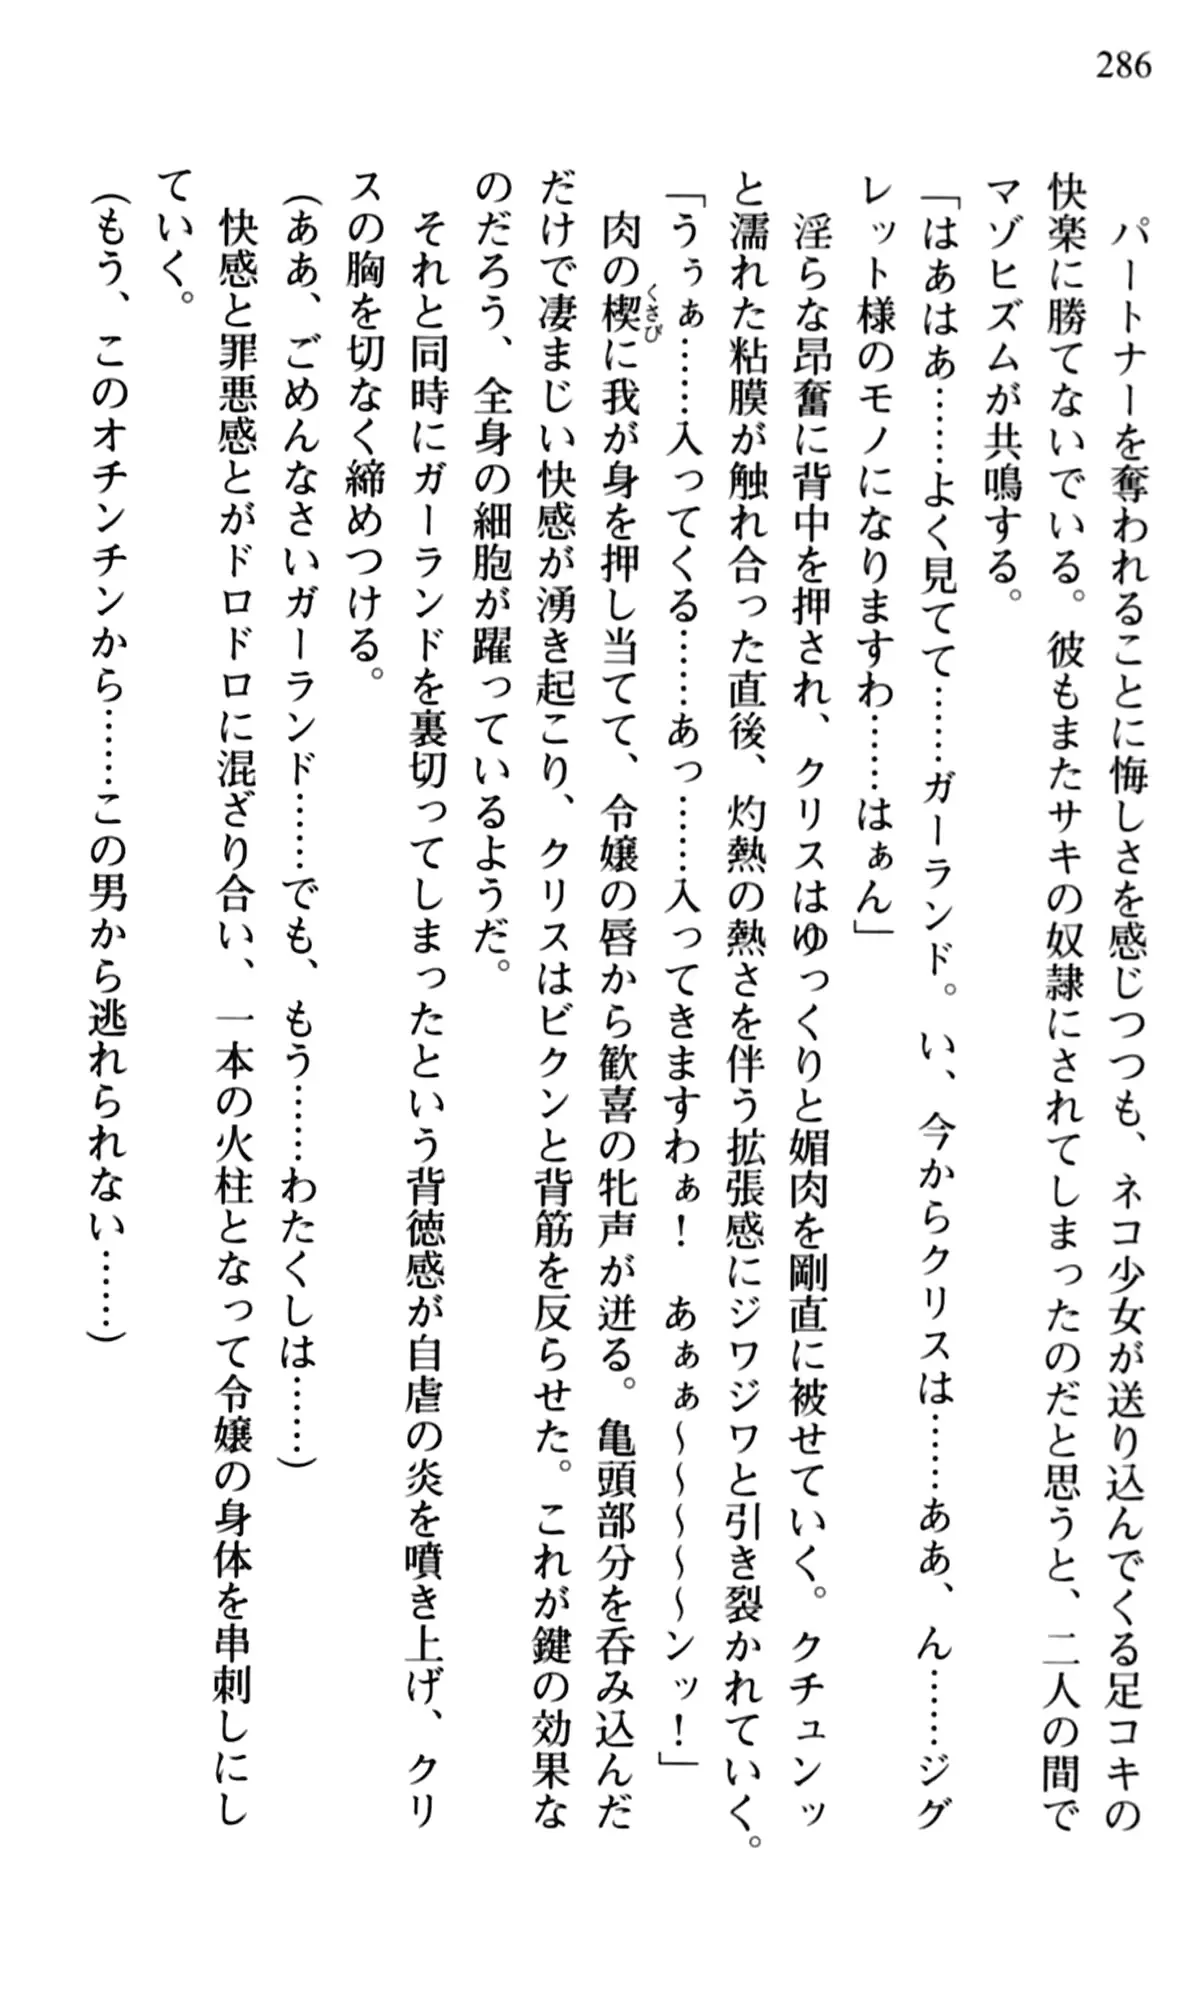 286
パートナーを奪われることに悔しさを感じつつも、ネコ少女が送り込んでくる足コキの
快楽に勝てないでいる。彼もまたサキの奴隷にされてしまったのだと思うと、二人の間で
マゾヒズムが共鳴する。
「はあはあ……よく見てて……ガーランド。い、今からクリスは……ああ、ん……ジグ
レット様のモノになりますわ……はぁん」
淫らな昂奮に背中を押され、クリスはゆっくりと媚肉を剛直に被せていく。クチュンッ
と濡れた粘膜が触れ合った直後、灼熱の熱さを伴う拡張感にジワジワと引き裂かれていく。
「うぅぁ……入ってくる……あっ……入ってきますわぁ！　あぁぁ～～～～～ンッ！」
肉の楔くさびに我が身を押し当てて、令嬢の唇から歓喜の牝声が迸る。亀頭部分を呑み込んだ
だけで凄まじい快感が湧き起こり、クリスはビクンと背筋を反らせた。これが鍵の効果な
のだろう、全身の細胞が躍っているようだ。
それと同時にガーランドを裏切ってしまったという背徳感が自虐の炎を噴き上げ、クリ
スの胸を切なく締めつける。
（ああ、ごめんなさいガーランド……でも、もう……わたくしは……）
快感と罪悪感とがドロドロに混ざり合い、一本の火柱となって令嬢の身体を串刺しにし
ていく。
（もう、このオチンチンから……この男から逃れられない……）